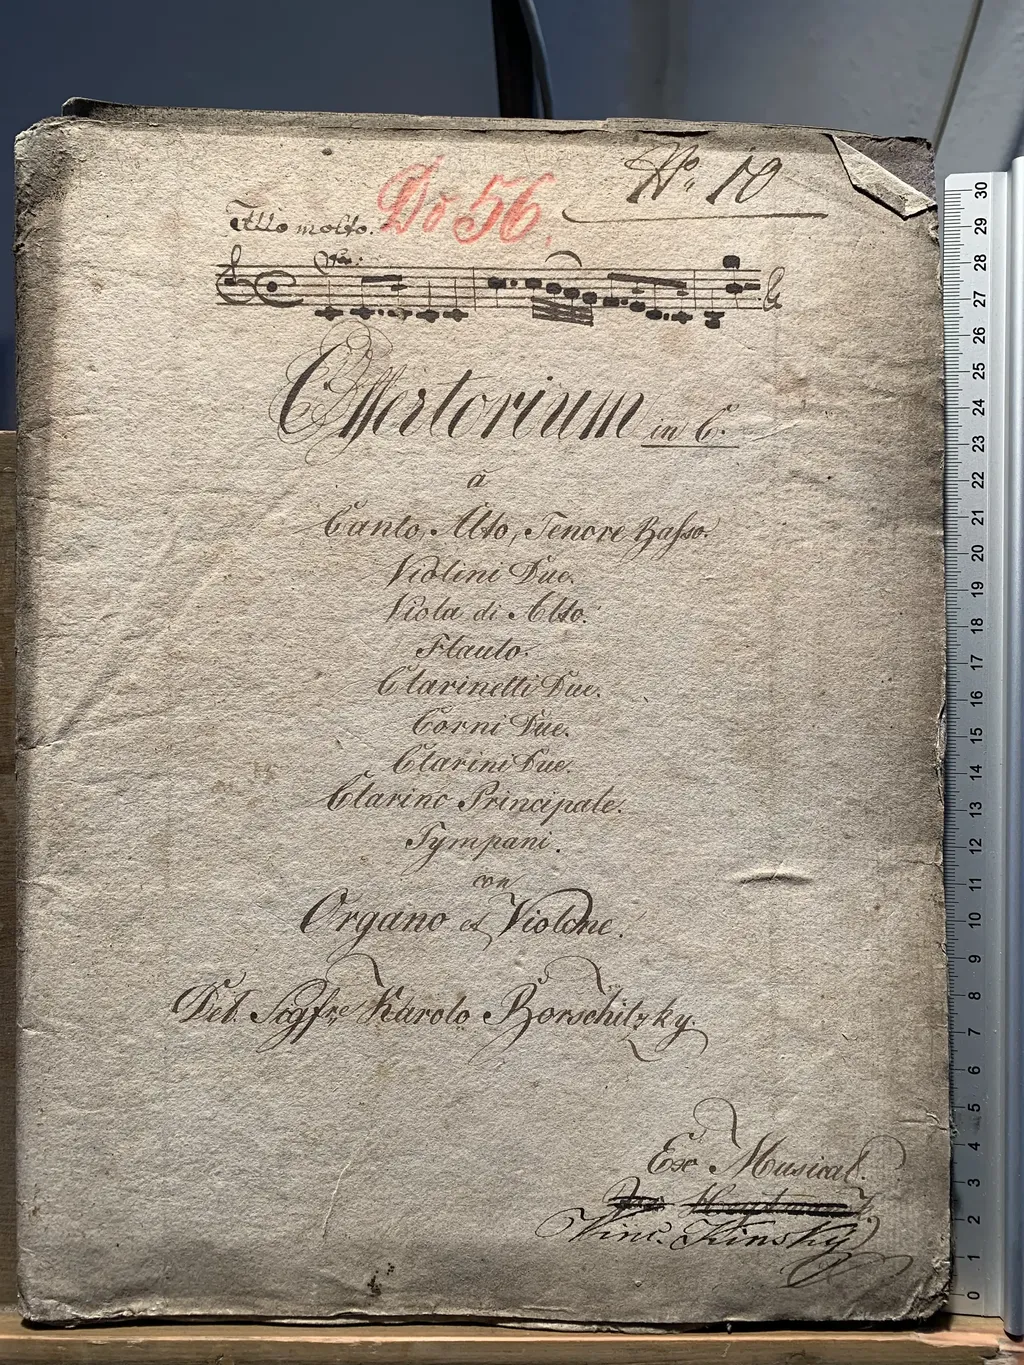 No. 10
Do 56.
Allo molto.
Offertorium in C.
à
Canto, Alto, Tenore Basso.
Violini Due.
Viola di Alto.
Flauto.
Clarinetti Due.
Corni Due.
Clarini Due.
Clarino Principale.
Tympani.
con
Organo et Violone.
Del Sigfre Karolo Borschitzky.
Exc Musical.
Winc. Kinsky
30
29
28
27
26
25
24
23
22
21
20
19
18
17
16
15
14
13
12
11
10
9
8
7
6
5
4
3
2
1
0